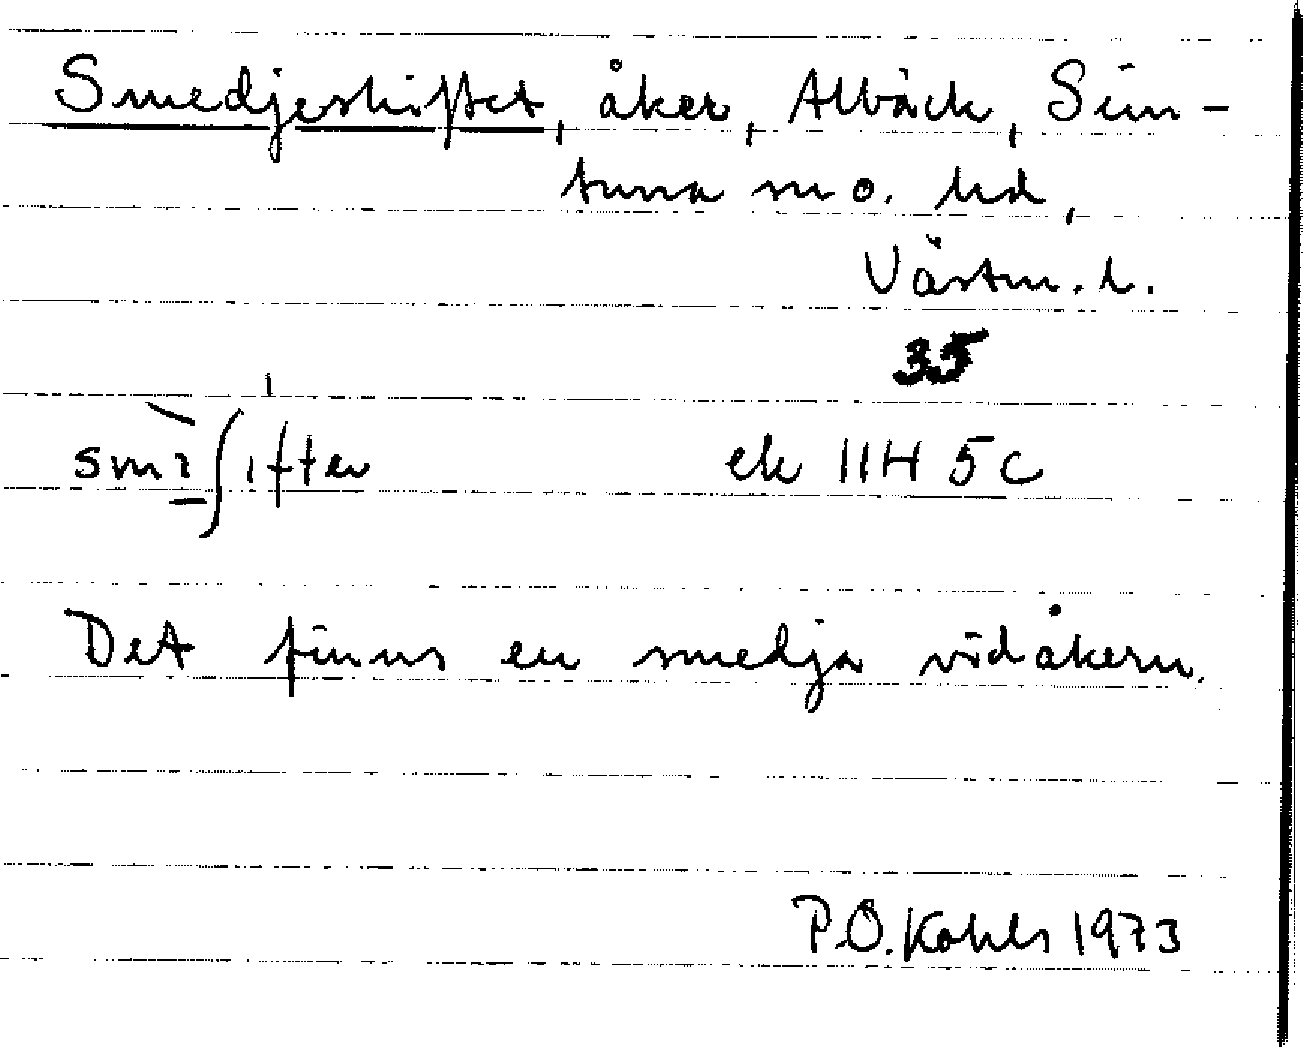 Smedjeskiftet, åker, Allbäck, Sim-
tuna sn o. hd,
Västm. l.
35
ek 11H 5c
Det finns en smedja vid åkern.
P.O. Kohls 1973